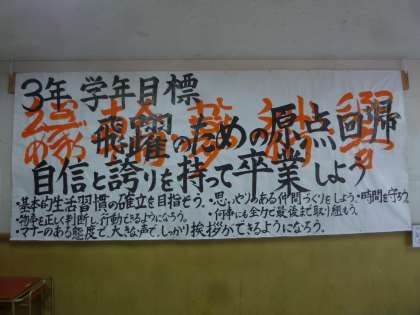 3年 学年目標
飛躍のための原点回帰
自信と誇りを持って卒業しよう
・基本的生活習慣の確立を目指そう。・思いやりのある仲間づくりをしよう。・時間を守ろう。
・物事を正しく判断し、行動できるようになろう。・何事にも全力で最後まで取り組もう。
・マナーのある態度で、大きな声で、しっかり挨拶ができるようになろう。